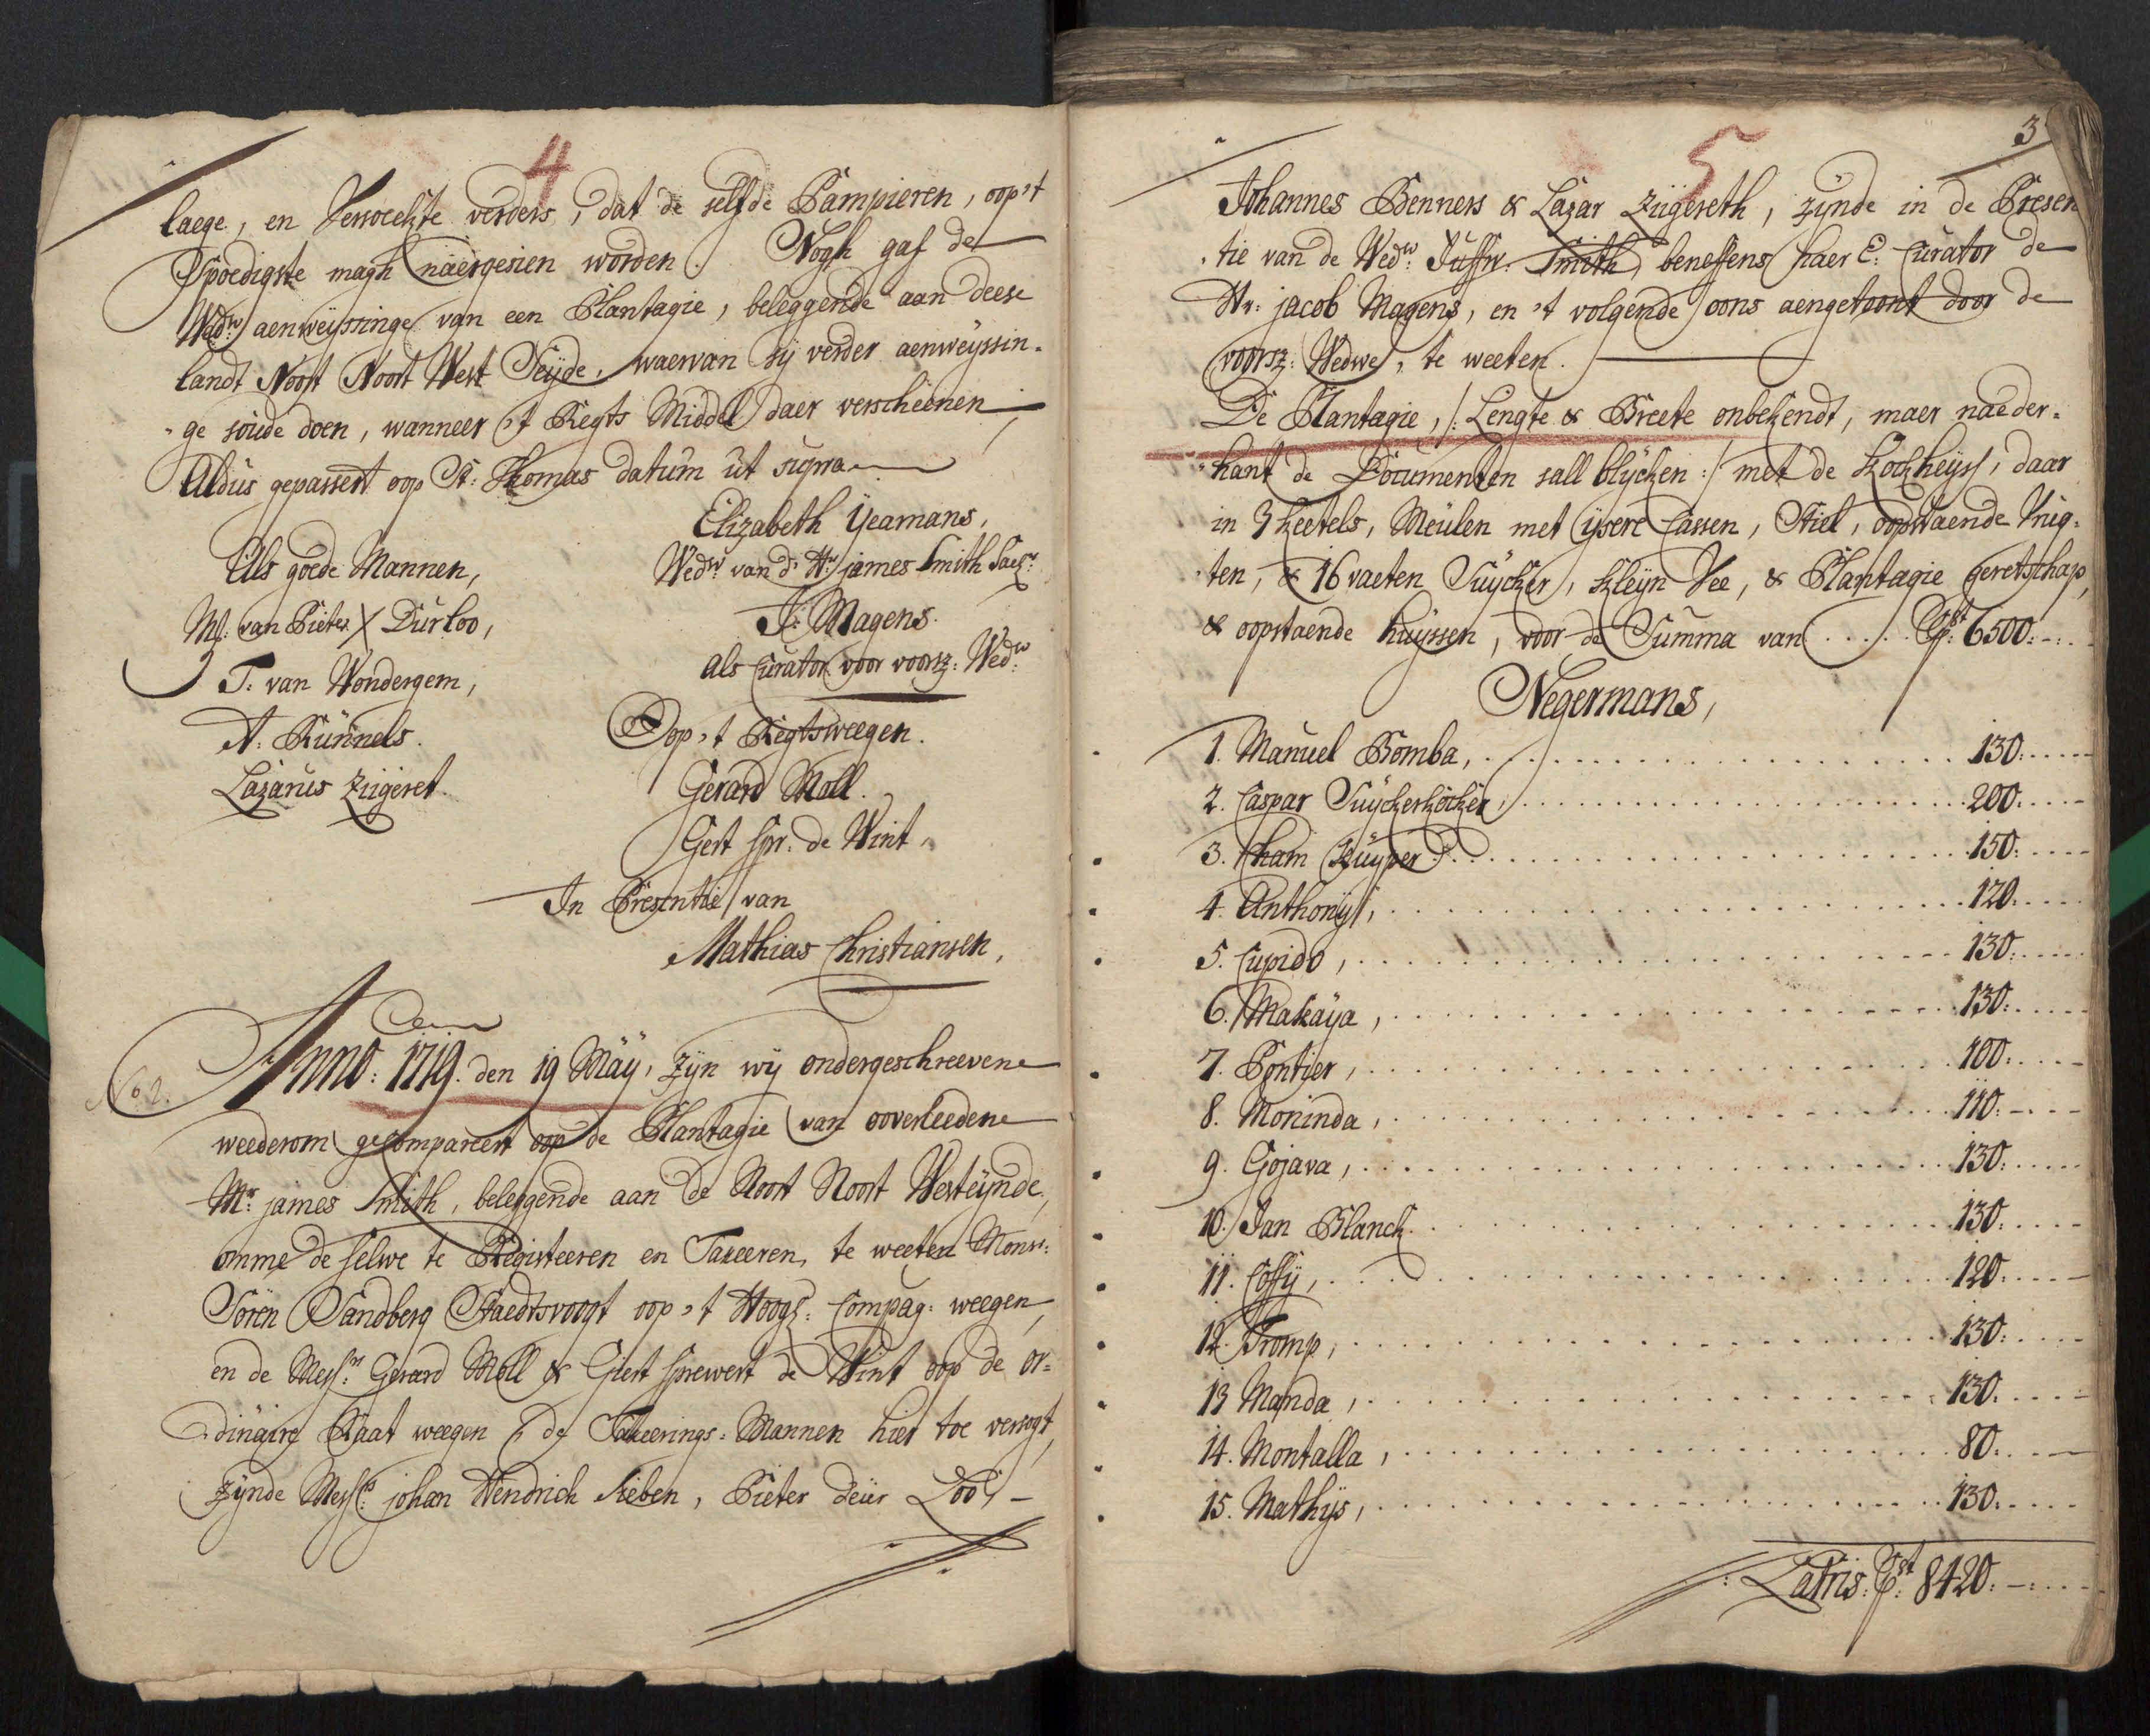 4
laege, en Versoekte verders, dat de selfde Pampieren, oop't
Spoedigste magh naergesien worden. Nogh gaf de
Wedw: aenweijssinge van een Plantagie, beleggende aan deese
landt Noort Noort West Seijde, waervan sij verder aenweijssin-
ge soude doen, wanneer 't Regts Middel daer verscheenen
Aldus gepasseert oop St: Thomas datum ut supra
Elizabeth Yeamans,
Als goede Mannen,
Wedw: van d' Hr: james Smith Saelr:
M: van Pieter X Durloo,
J: Magens.
T: van Wondergem,
als Curator voor voorsz: Wedw:
A: Runnels.
Oop 't Regtsweegen.
Lazarus Ziigeret.
Gerard Moll.
Gert Spr: de Wint,
In Presentie van
Mathias Christiansen,
No 2.
Anno: 1719. den 19 Maÿ, zijn wij ondergeschreevene
weederom gecompareert oop de Plantagie van ooverleedene
Mr: james Smith, beleggende aan de Noort Noort Westeijnde,
omme de selwe te Registeeren en Taxeeren, te weeten Monsr:
Sören Sandberg Staedtsvoogt oop 't Hoogl: Compag: weegen,
en de Messrs: Gerard Moll & Giert Sprewert de Wint oop de or-
dinaire Raat weegen, de Taxeerings-Mannen hier toe versogt,
zijnde Messrs: johan Hendrick Sieben, Pieter deur Loo,
3
5
Johannes Benners & Lazar Ziigereth, zijnde in de Presen
tie van de Wedw: Juffr: Smith beneffens haer E: Curator de
Hr: jacob Magens, en 't volgende oons aengetoont door de
voorsz: Wedwe, te weeten.
De Plantagie, /: Lengte & Breete onbekendt, maer naeder-
hant de Documenten sall blijcken :/ met de Kockheijs, daar
in 3 keetels, Meulen met ijsere Cassen, Stiel, oopstaende Vrug-
ten, & 16 vaeten Suijcker, kleijn Vee, & Plantagie geretschap,
& oopstaende huijssen, voor de Summa van ..... Pst: 6500:-:.
Negermans,
1. Manuel Bomba, ..... 130:
2. Caspar Suijckerkocker, ..... 200:
3. Cham Kuijper ..... 150:
4. Anthonij, ..... 120:
5. Cupido, ..... 130:
6. Makaija, ..... 130:
7. Pontier, ..... 100:
8. Moninda, ..... 110:
9. Gojava, ..... 130:
10. Jan Blanck ..... 130:
11. Coffij, ..... 120:
12. Tromp, ..... 130:
13. Manda, ..... 130:
14. Montalla, ..... 80:
15. Mathijs, ..... 130:
Latris: Pst: 8420:-: